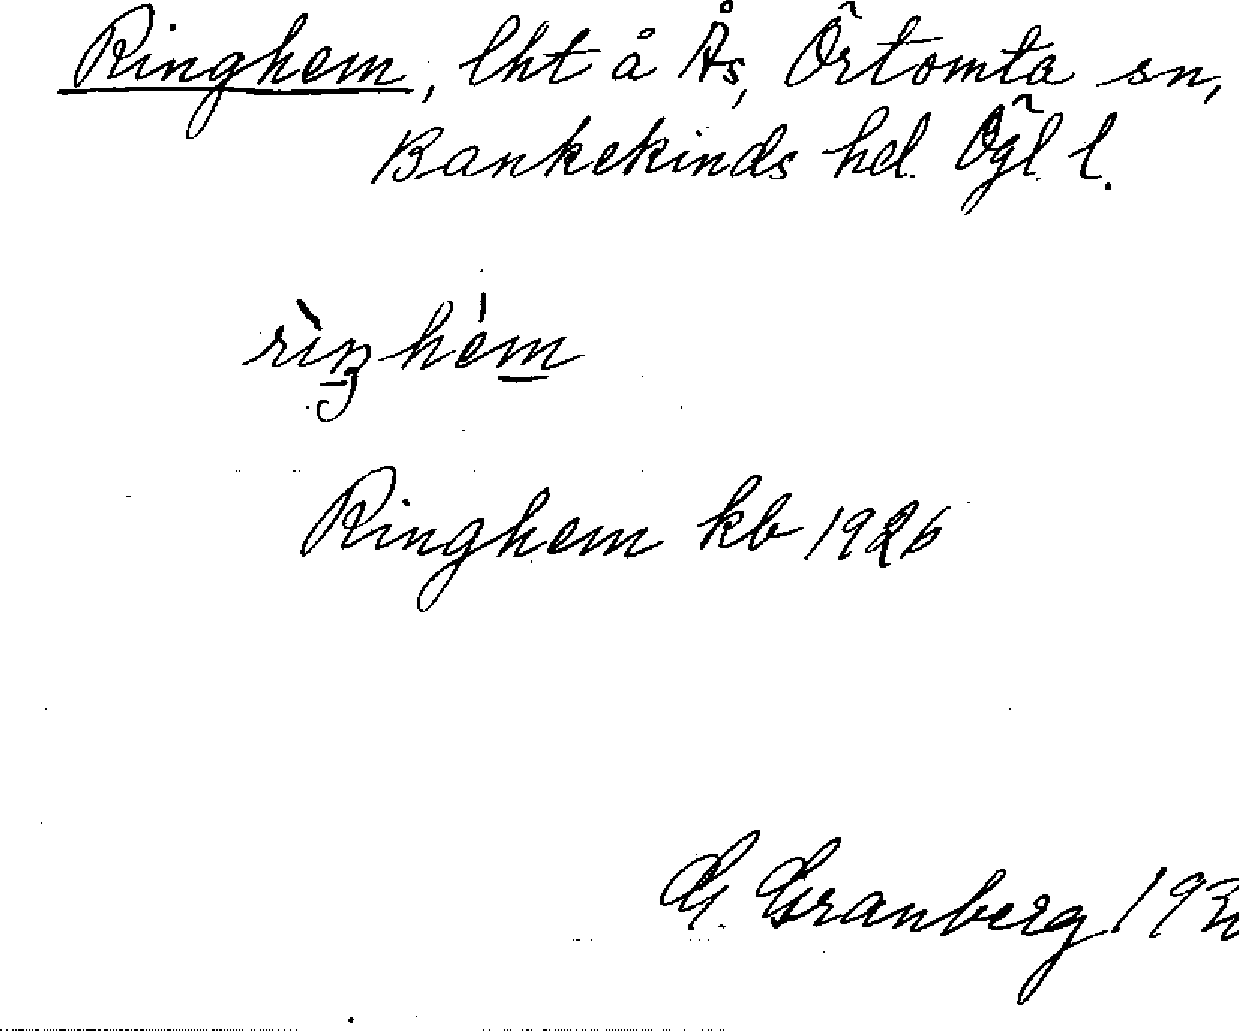 Ringhem, lht å Ås, Örtomta sn,
Bankekinds hd. Ögl. l.
rìŋhém
Ringhem kb 1926
G. Granberg